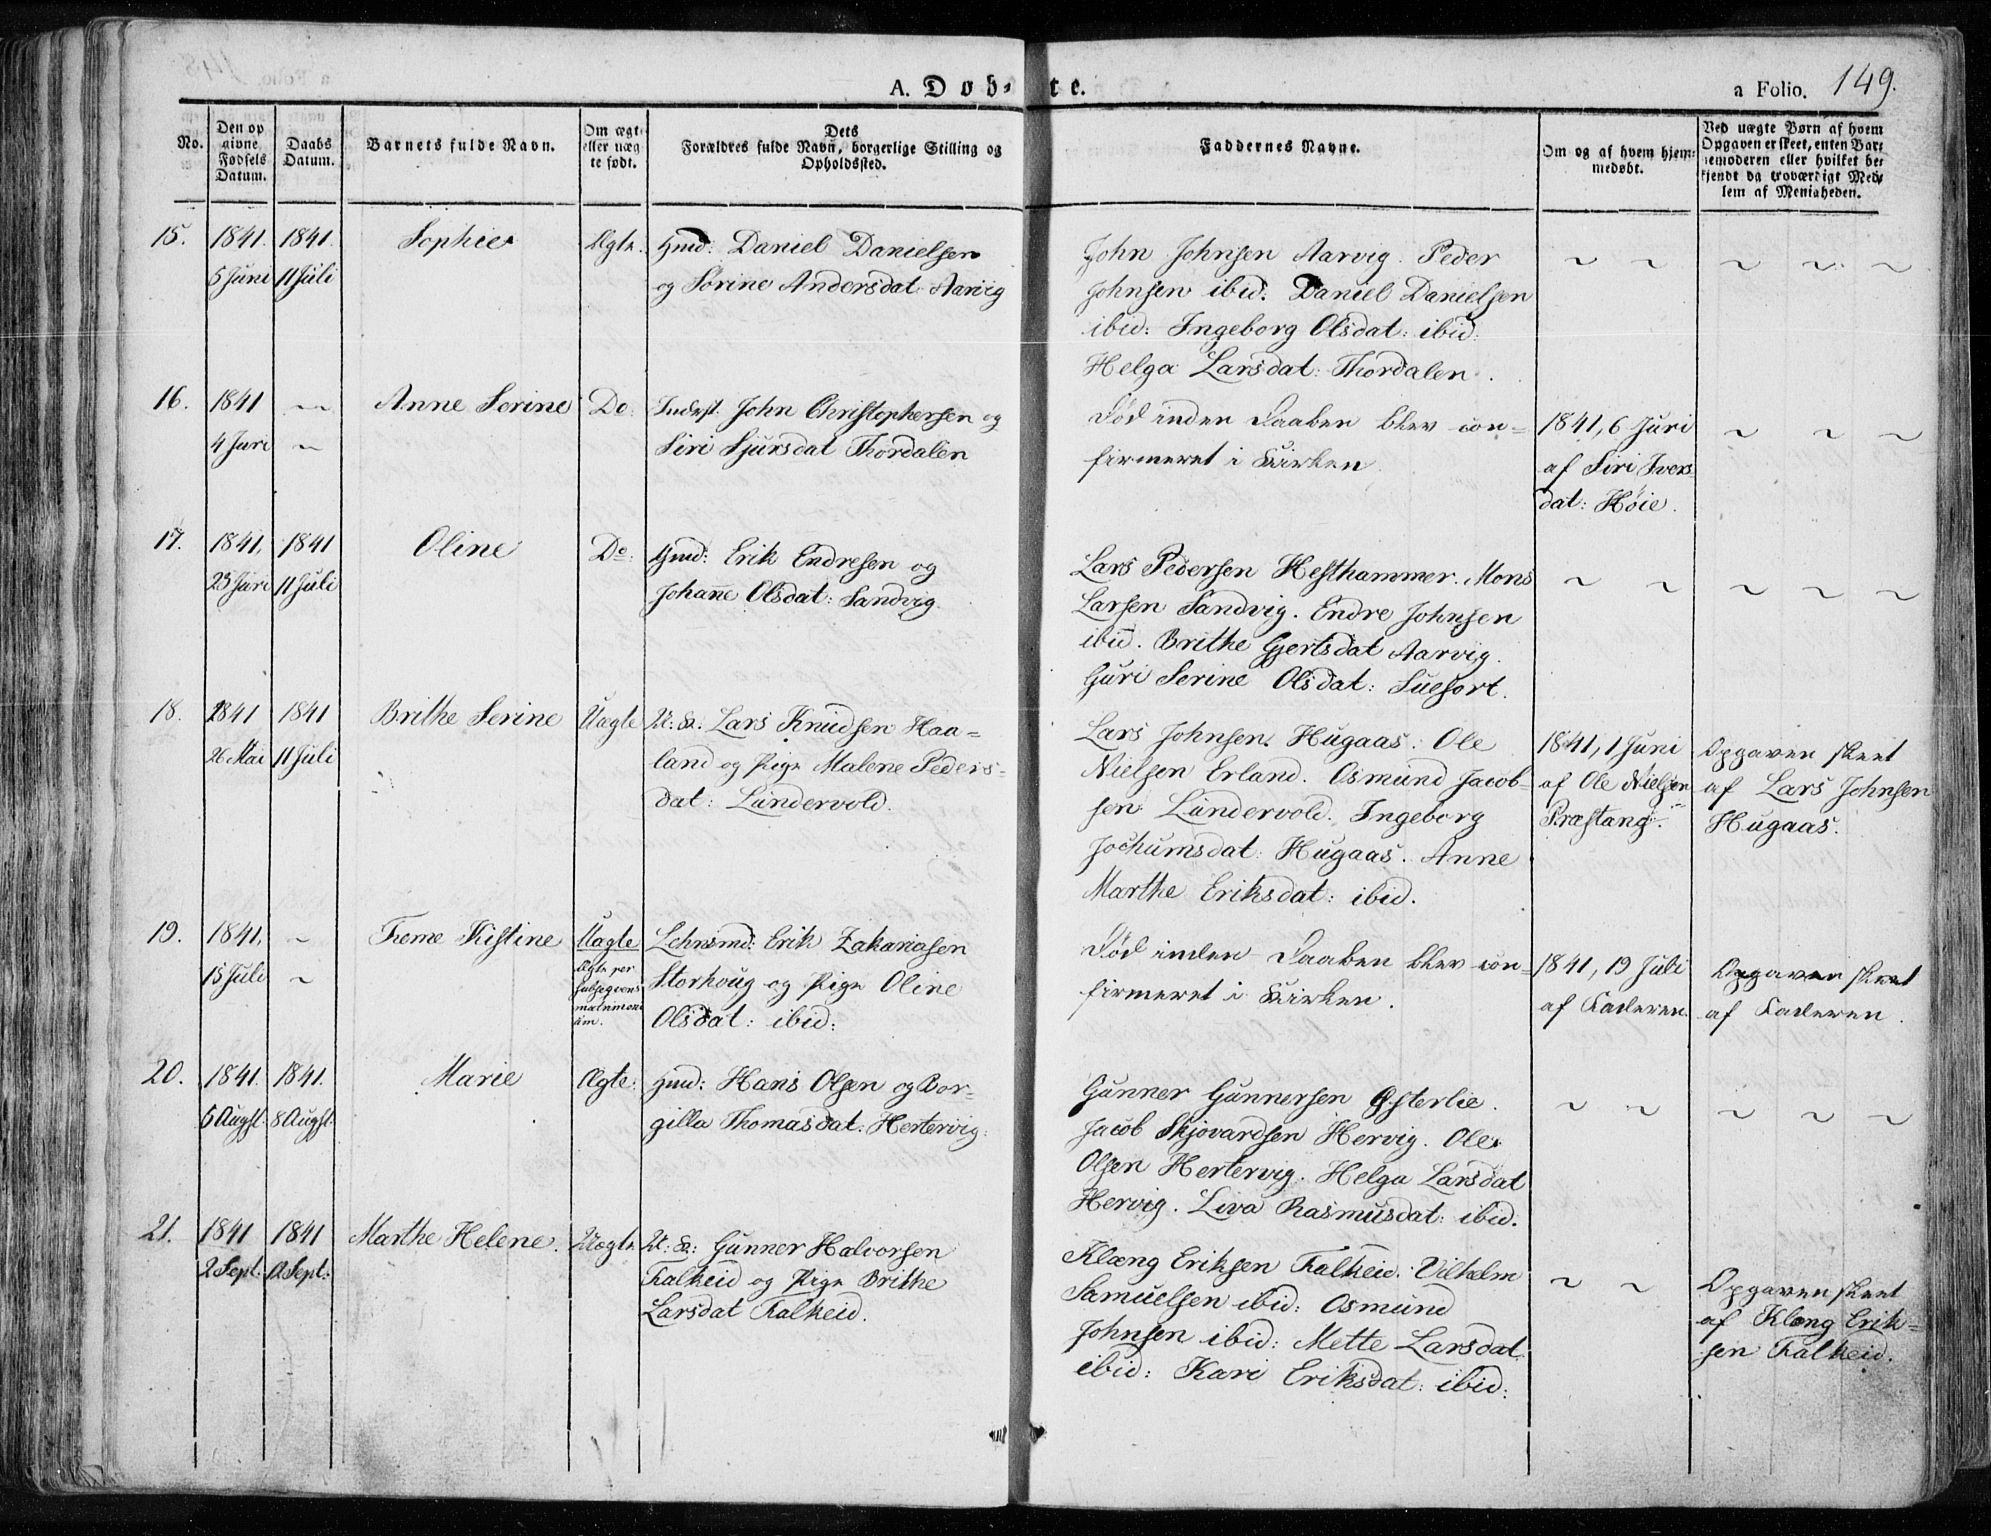 A. Døb-te.
a Folio. 149.
No.
Den op
givne
Fødsels
Datum.
Daabs
Datum.
Barnets fulde Navn.
Om ægt-
eller uæg
te født.
Dets
Forældres fulde Navn, borgerlige Stilling og
Opholdssted.
Faddernes Navne.
Om og af hvem hjem-
medøbt.
Ved uægte Børn af hvem
Opgaven er skeet, enten Bar-
nemoderen eller hvilket be-
kjendt og troværdigt Med-
lem af Menigheden.
15.
1841.
5 Juni
1841.
11 Juli
Sophie
Ægte.
Gmd: Daniel Danielsen
og Sørine Andersdat. Aarvig
John Johnsen Aarvig. Peder
Johnsen ibid. Daniel Danielsen
ibid: Ingeborg Olsdat: ibid.
Helga Larsdat: Thordalen.
~ ~ ~ ~ ~
16.
1841
4 Juni
~
~
Anne Serine
Do:
Inderst. John Christophersen og
Siri Sjursdat Thordalen
Død inden Daaben blev con-
firmeret i Kirken.
1841, 6 Juni
af Siri Ivers-
dat: Høie.
~ ~ ~
17.
1841,
23 Juni
1841
11 Juli
Oline
Do:
Gmd: Erik Endresen og
Johan̄e Olsdat: Sandvig.
Lars Pedersen Hesthammer. Mons
Larsen Sandvig. Endre Johnsen
ibid. Brithe Gjertsdat Aarvig.
Guri Serine Olsdat: Suefort.
~ ~ ~ ~ ~
18.
1841
26 Mai
1841
11 Juli
Brithe Serine
Uægte
U: K: Lars Knudsen Haa-
land og Pige Malene Peders-
dat: Lundervold.
Lars Johnsen Hugaas. Ole
Nielsen Erland. Osmund Jacob-
sen Lundervold. Ingeborg
Jochumsdat: Hugaas. Anne
Marthe Eriksdat: ibid.
1841, 1 Juni
af Ole Nielsen
Præstang.
Opgaven skeet
af Lars Johnsen
Hugaas.
19.
1841,
15 Juli
~
~
Freme Kistine
Uægte
Ægte per
subseqvens
matrimoni
um.
Lehnsmd: Erik Zakariasen
Storhoug og Pige Oline
Olsdat: ibid:
Død inden Daaben blev con-
firmeret i Kirken.
1841, 19 Juli
af Faderen.
Opgaven skeet
af Faderen.
20.
1841.
5 Augst.
1841.
8 Augst.
Marie
Ægte:
Gmd: Hans Olsen og Bor-
gilla Thomasdat: Hertervig.
Gunner Gunnersen Østerlie.
Jacob Skjovardsen Hervig. Ole
Olsen Hertervig. Helga Larsdat
Hervig. Liva Rasmusdat: ibid.
~ ~ ~ ~ ~
21.
1841
2 Sept:
1841
Sept:
Marthe Helene.
Uægte
U: K: Gunner Halvorsen
Falkeid og Pige Brithe
Larsdat Falkeid.
Klæng Eriksen Falkeid. Vilhelm
Samuelsen ibid: Osmund
Johnsen ibid: Mette Larsdat.
ibid: Kari Eriksdat: ibid:
~ ~
Opgaven skeet
af Klæng Erik-
sen Falkeid.